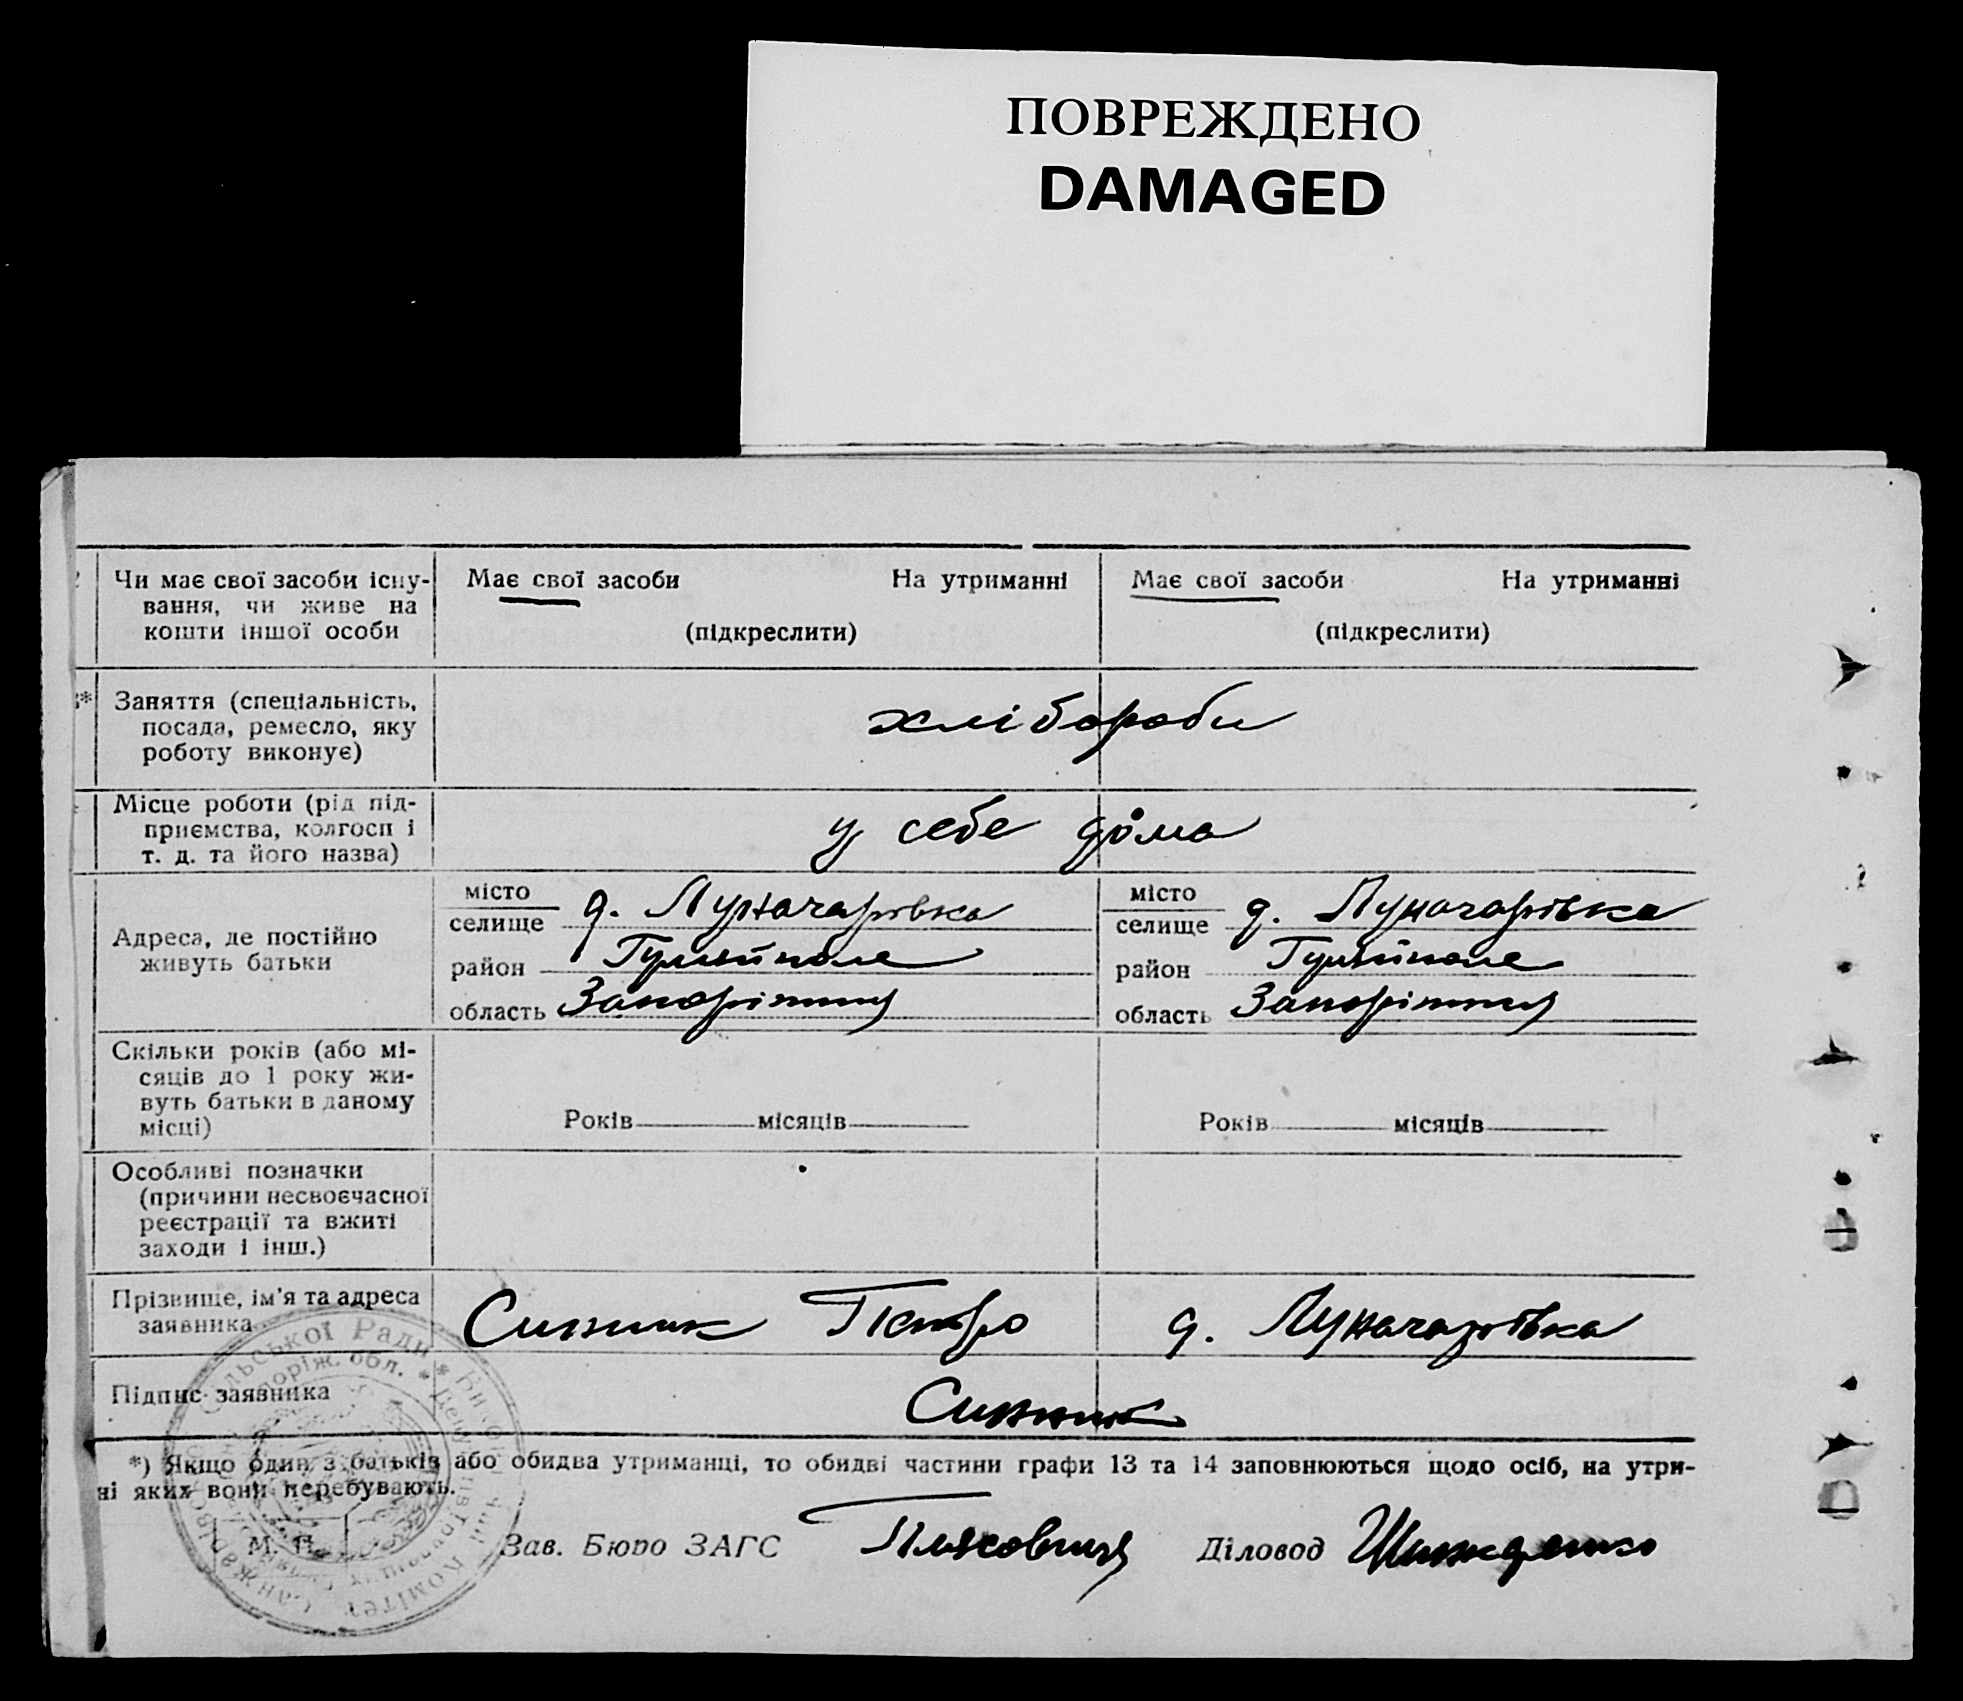 ПОВРЕЖДЕНО
DAMAGED
Чи має свої засоби існу-
вання, чи живе на
кошти іншої особи
Має свої засоби На утриманні
(підкреслити)
Має свої засоби На утриманні
(підкреслити)
Заняття (спеціальність,
посада, ремесло, яку
роботу виконує)
хлібороби
Місце роботи (рід під-
приємства, колгосп і
т. д. та його назва)
у себе дома
Адреса, де постійно
живуть батьки
місто
селище д. Луначарівка
район Гуляйполе
область Запоріжжя
місто
селище д. Луначарівка
район Гуляйполе
область Запоріжжя
Скільки років (або мі-
сяців до 1 року жи-
вуть батьки в даному
місці)
Років місяців
Років місяців
Особливі позначки
(причини несвоєчасної
реєстрації та вжиті
заходи і інш.)
Прізвище, ім'я та адреса
заявника
Синник Петро д. Луначарівка
Підпис заявника
Синник
*) Якщо один з батьків або обидва утриманці, то обидві частини графи 13 та 14 заповнюються щодо осіб, на утри-
ні яких вони перебувають.
М. П.
Зав. Бюро ЗАГС Діловод
Сільської Ради * Викон чий Комітет
поріж. обл. * Депутатів Трудящих